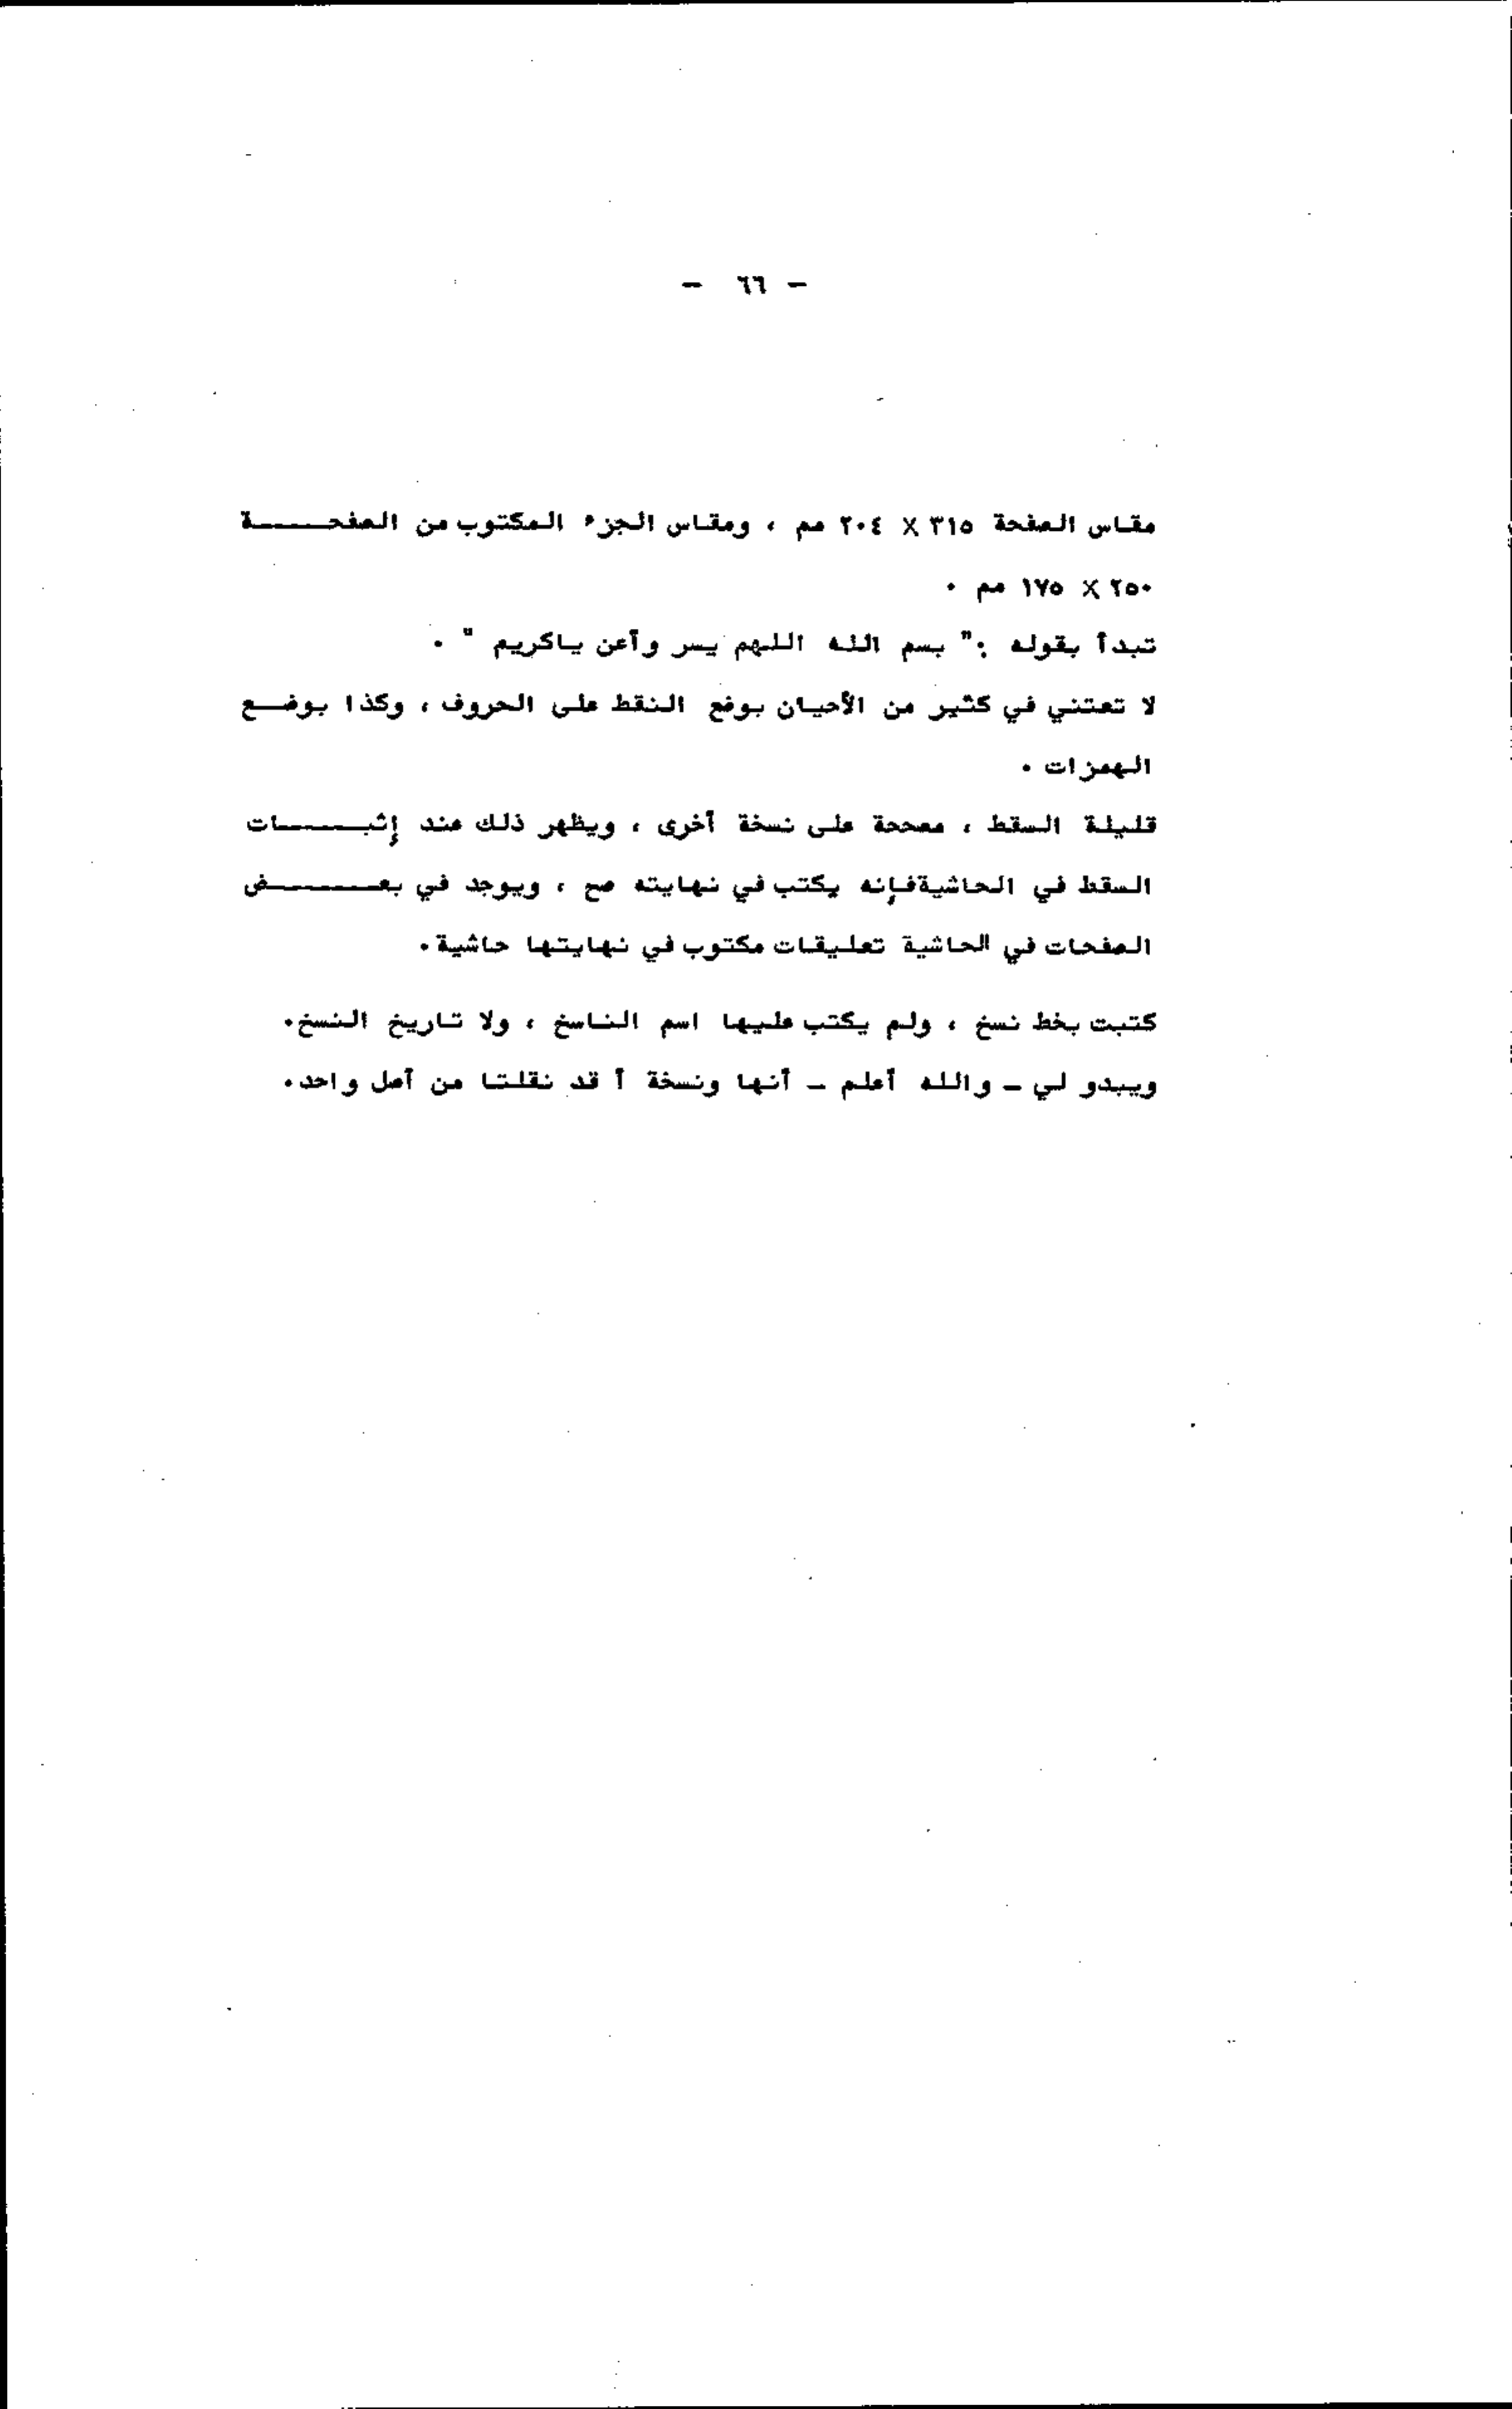 - ٦٦ -
مقاس الصفحة ٣١٥ X ٢٠٤ مم ، ومقاس الجزء المكتوب من الصفحـــــة
٢٥٠ X ١٧٥ مم ٠
تبدأ بقوله :" بسم الله اللهم يسر وأعن ياكريم " ٠
لا تعتني في كثير من الأحيان بوضع النقط على الحروف ، وكذا بوضـــع
الهمزات ٠
قليلة السقط ، مصححة على نسخة أخرى ، ويظهر ذلك عند إثبـــــــات
السقط في الحاشيةفإنه يكتب في نهايته صح ، ويوجد في بعـــــــــض
الصفحات في الحاشية تعليقات مكتوب في نهايتها حاشية٠
كتبت بخط نسخ ، ولم يكتب عليها اسم الناسخ ، ولا تاريخ النسخ٠
ويبدو لي - والله أعلم - أنها ونسخة أ قد نقلتا من أصل واحد٠